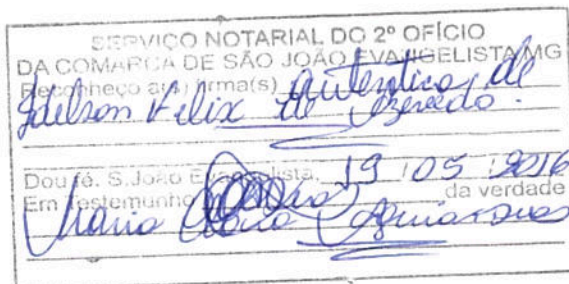 SERVIÇO NOTARIAL DO 2º OFÍCIO
DA COMARCA DE SÃO JOÃO EVANGELISTA/MG
Reconheço a(s) firma(s) autentica de
Idelson Felix de Azevedo.
Dou fé. S.João Evangelista, 19/05/2016
Em testemunho da verdade
Maria